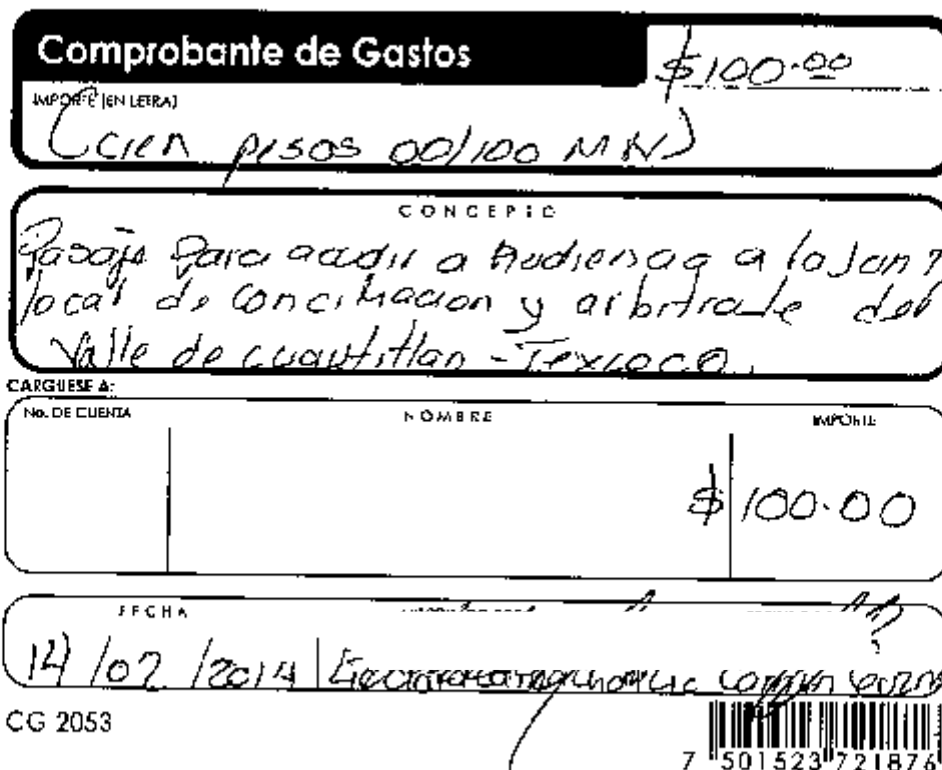 Comprobante de Gastos
$100.00
IMPORTE (EN LETRA)
(cien pesos 00/100 MN)
CONCEPTO
Pasaje Para acudir a Audiencia a la Junt
local de conciliacion y arbitraje del
Valle de cuautitlan - Texcoco.
CARGUESE A:
No. DE CUENTA
NOMBRE
IMPORTE
$ 100.00
FECHA
14/02/2014
CG 2053
7 501523 721876